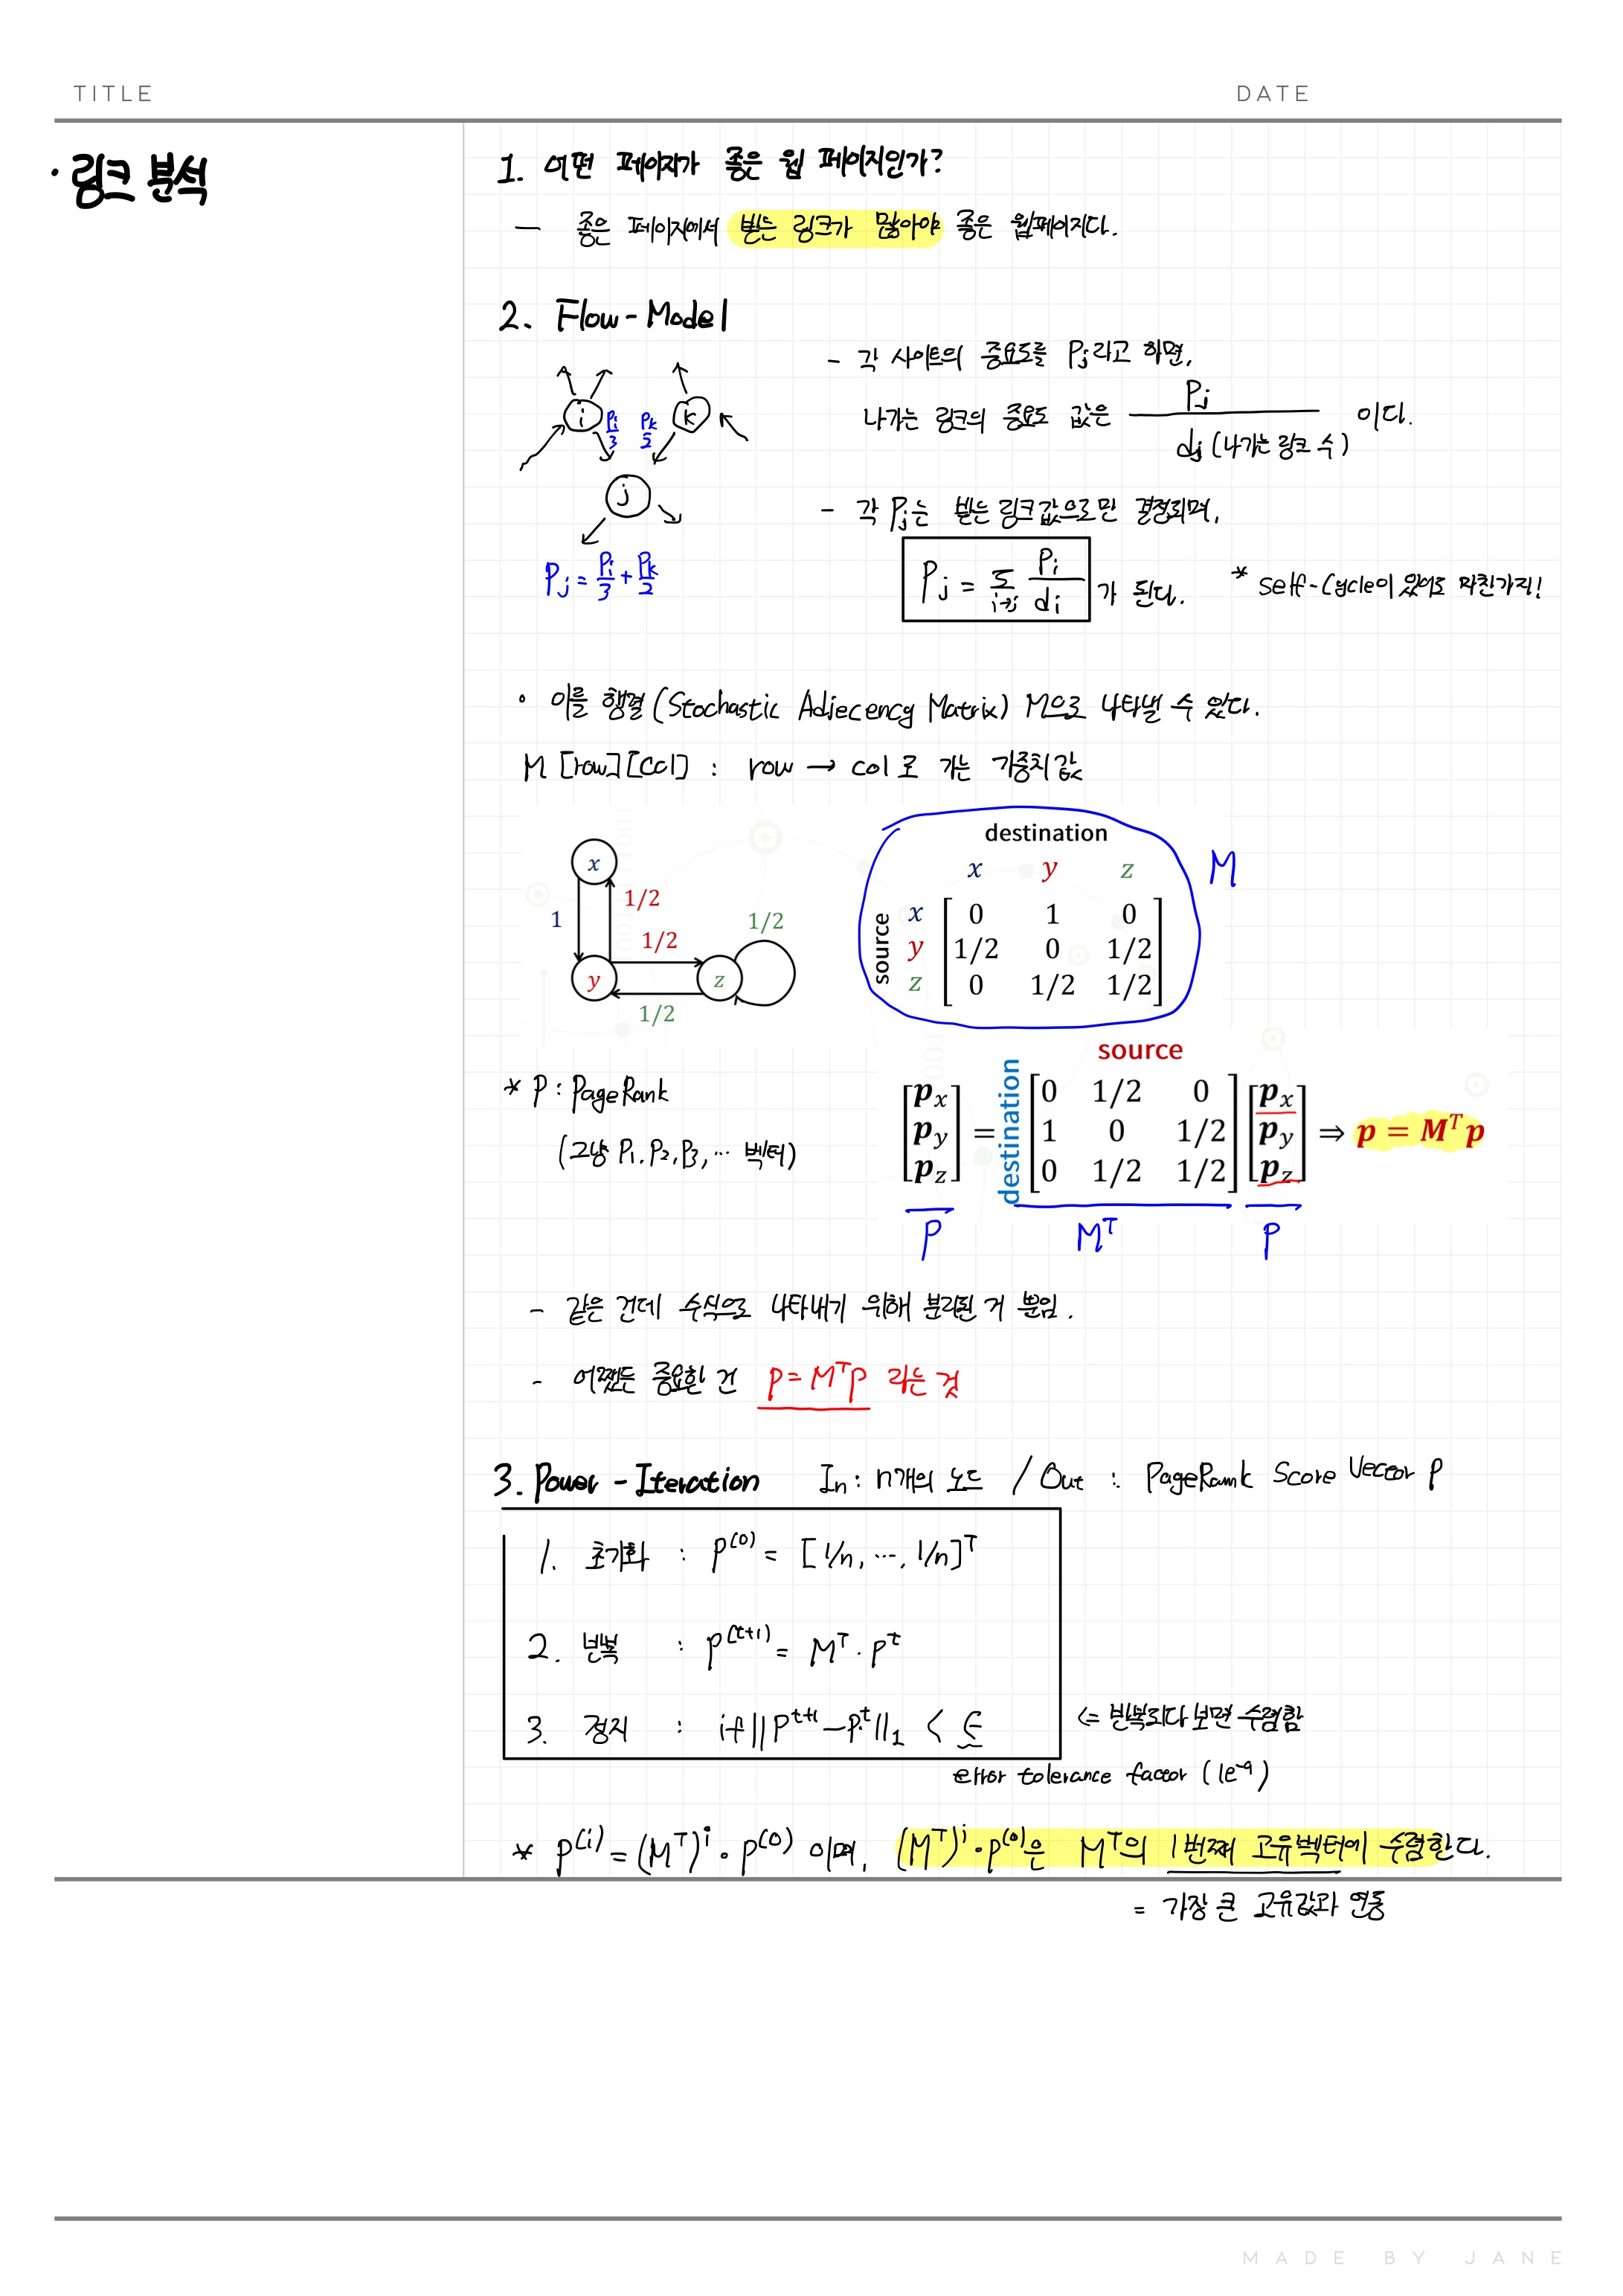 TITLE
DATE
· 링크 분석
1. 어떤 페이지가 좋은 웹 페이지인가?
— 좋은 페이지에서 받는 링크가 많아야 좋은 웹페이지다.
2. Flow-Model
i
Pi/3
Pk/2
k
j
Pj = Pi/3 + Pk/2
- 각 사이트의 중요도를 Pj라고 하면,
나가는 링크의 중요도 값은 Pj / dj (나가는 링크 수) 이다.
- 각 Pj는 받는 링크값으로만 결정되며,
Pj = Σ i→j Pi/di 가 된다. * self-cycle이 있어도 마찬가지!
∘ 이를 행렬(Stochastic Adjecency Matrix) M으로 나타낼 수 있다.
M [row][col] : row → col 로 가는 가중치 값
x
1
1/2
1/2
1/2
y
z
1/2
destination
M
x y z
source
x [ 0 1 0 ]
y [ 1/2 0 1/2 ]
z [ 0 1/2 1/2 ]
* P : PageRank
(그냥 P1, P2, P3, ··· 벡터)
source
destination
[px] [0 1/2 0] [px]
[py] = [1 0 1/2] [py] ⇒ p = Mᵀp
[pz] [0 1/2 1/2] [pz]
P Mᵀ P
- 같은 건데 수식으로 나타내기 위해 분리된 거 뿐임.
- 어쨌든 중요한 건 p = Mᵀp 라는 것
3. Power - Iteration In : n개의 노드 / Out : PageRank Score Vector P
1. 초기화 : P⁽⁰⁾ = [1/n, ···, 1/n]ᵀ
2. 반복 : P⁽ᵗ⁺¹⁾ = Mᵀ · Pᵗ
3. 정지 : if ||Pᵗ⁺¹ - Pᵗ||₁ < ∈ <= 반복되다 보면 수렴함
error tolerance factor (1e⁻⁹)
* P⁽ⁱ⁾ = (Mᵀ)ⁱ · P⁽⁰⁾ 이며, (Mᵀ)ⁱ · P⁽⁰⁾은 Mᵀ의 1번째 고유벡터에 수렴한다.
= 가장 큰 고유값과 연동
MADE BY JANE